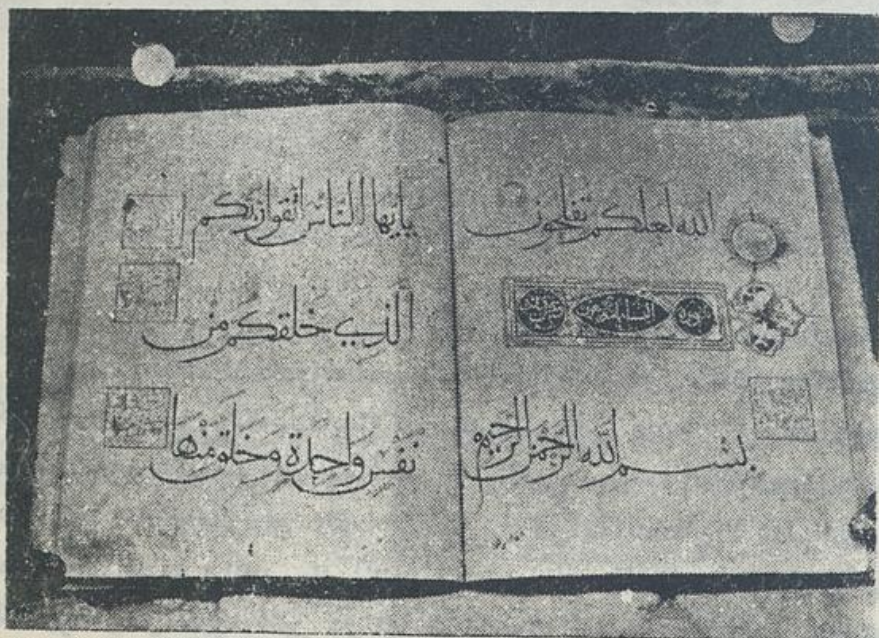 الله لعلكم تفلحون
بسم الله الرحمن الرحيم
يايها الناس اتقوا ربكم
الذي خلقكم من
نفس واحدة وخلق منها